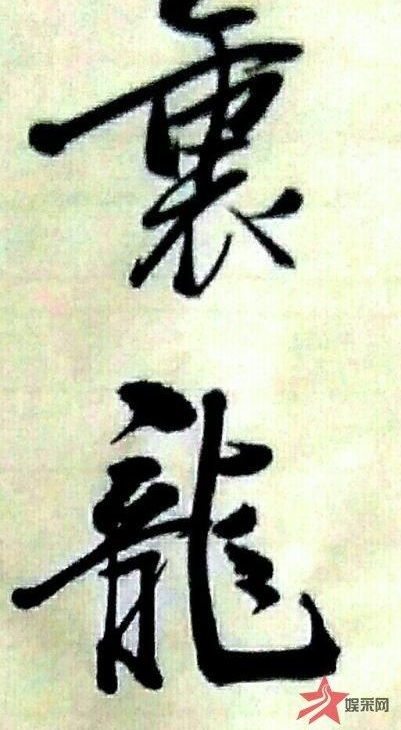 裏龍
娱采网